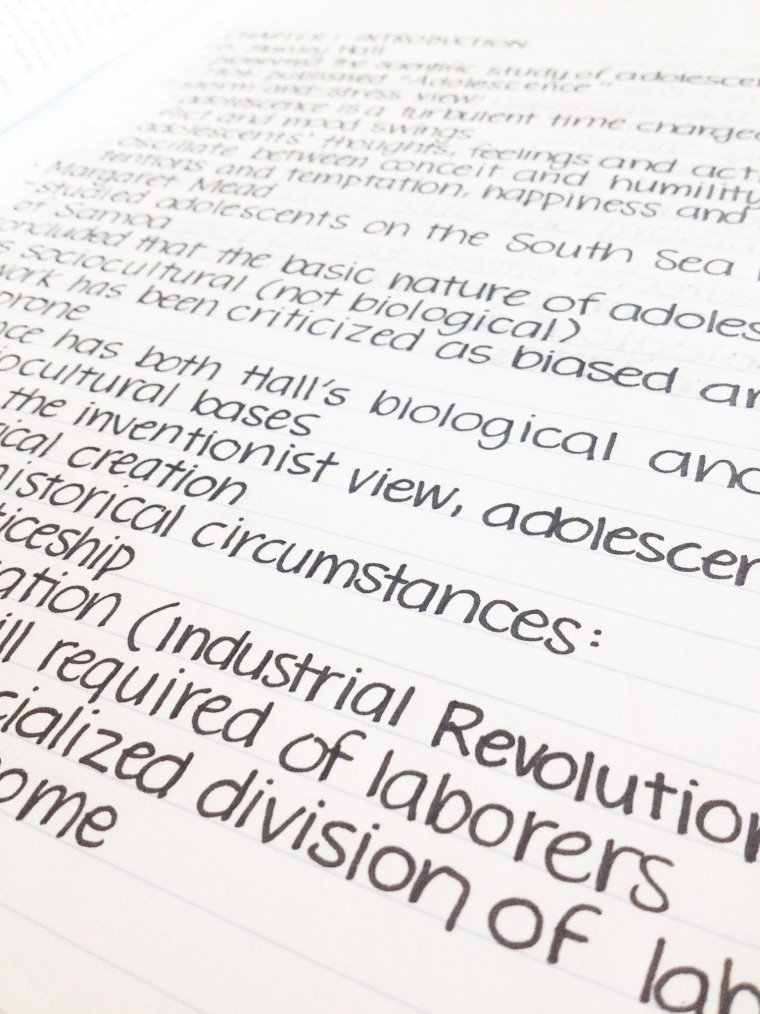 CHAPTER 1: INTRODUCTION
G. Stanley Hall
pioneered the scientific study of adolescen
published "Adolescence"
storm-and-stress view
adolescence is a turbulent time charged
flict and mood swings
adolescents' thoughts, feelings and acti
oscillate between conceit and humility
tentions and temptation, happiness and
Margaret Mead
-studied adolescents on the South Sea
of Samoa
oncluded that the basic nature of adoles
s sociocultural (not biological)
work has been criticized as biased an
prone
nce has both Hall's biological and
ocultural bases
the inventionist view, adolescen
ical creation
historical circumstances:
ticeship
ation (Industrial Revolution
ill required of laborers
cialized division of lab
ome